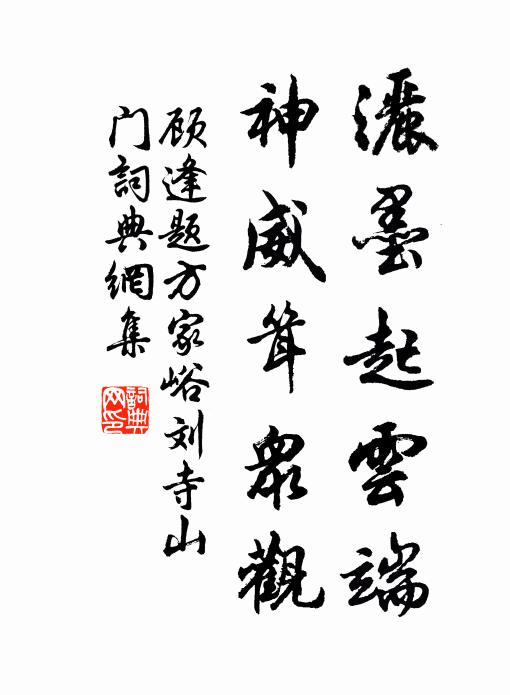 灑墨起雲端
神威耸眾觀
顾逢题方家峪刘寺山
门詞典網集
詞典网印